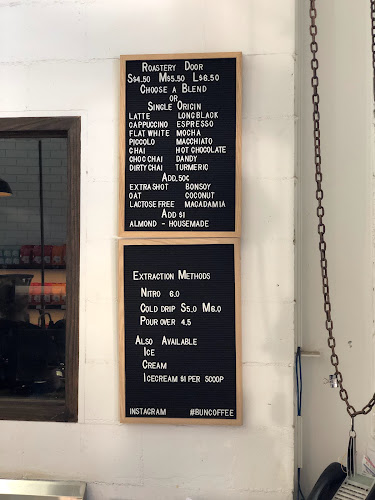 ROASTERY DOOR
S$4.50 M$5.50 L$6.50
CHOOSE A BLEND
OR
SINGLE ORIGIN
LATTE LONG BLACK
CAPPUCINO ESPRESSO
FLAT WHITE MOCHA
PICCOLO MACCHIATO
CHAI HOT CHOCOLATE
CHOC CHAI DANDY
DIRTY CHAI TURMERIC
ADD .50¢
EXTRA SHOT BONSOY
OAT COCONUT
LACTOSE FREE MACADAMIA
ADD $1
ALMOND - HOUSEMADE
EXTRACTION METHODS
NITRO 6.0
COLD DRIP S5.0 M6.0
POUR OVER 4.5
ALSO AVAILABLE
ICE
CREAM
ICECREAM $1 PER SCOOP
INSTAGRAM #BUNCOFFEE